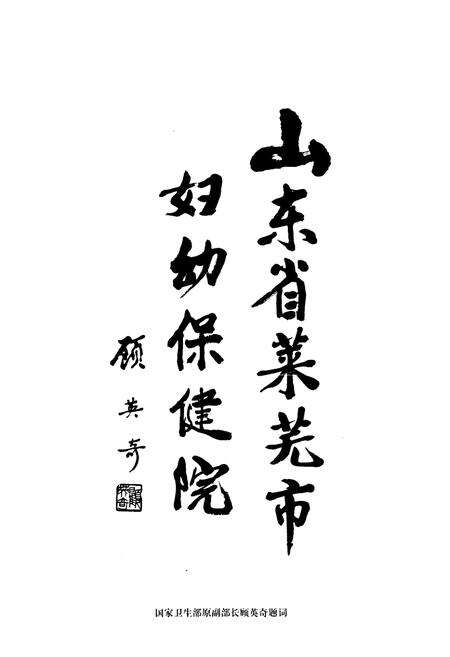 山东省莱芜市
妇幼保健院
顾英奇
国家卫生部原副部长顾英奇题词